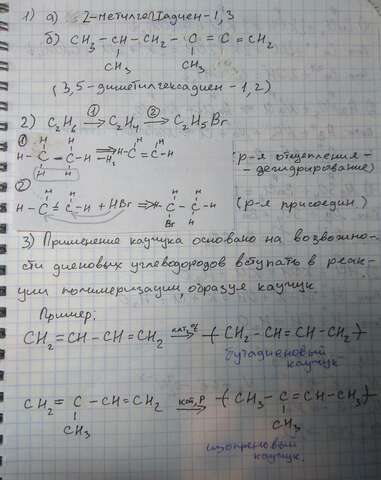 1) а) 2-метилгептадиен-1,3
б) CH3 - CH - CH2 - C = C = CH2
CH3 CH3
(3,5-диметилгексадиен-1,2)
2) C2H6 →① C2H4 →② C2H5Br
①
H H
H-C-C-H ⇒ -H2 H-C=C-H (р-я отщепления -
H H - дегидрирование)
②
H H H H
H-C=C-H + HBr ⇒ H-C-C-H (р-я присоедин.)
Br H
3) Применение каучука основано на возможно-
сти диеновых углеводородов вступать в реак-
ции полимеризации, образуя каучук
Пример:
CH2=CH-CH=CH2 → (CH2-CH=CH-CH2)
бутадиеновый
каучук
CH2=C-CH=CH2 кат, P → (CH3-C=CH-CH3)
CH3 CH3
изопреновый
каучук.